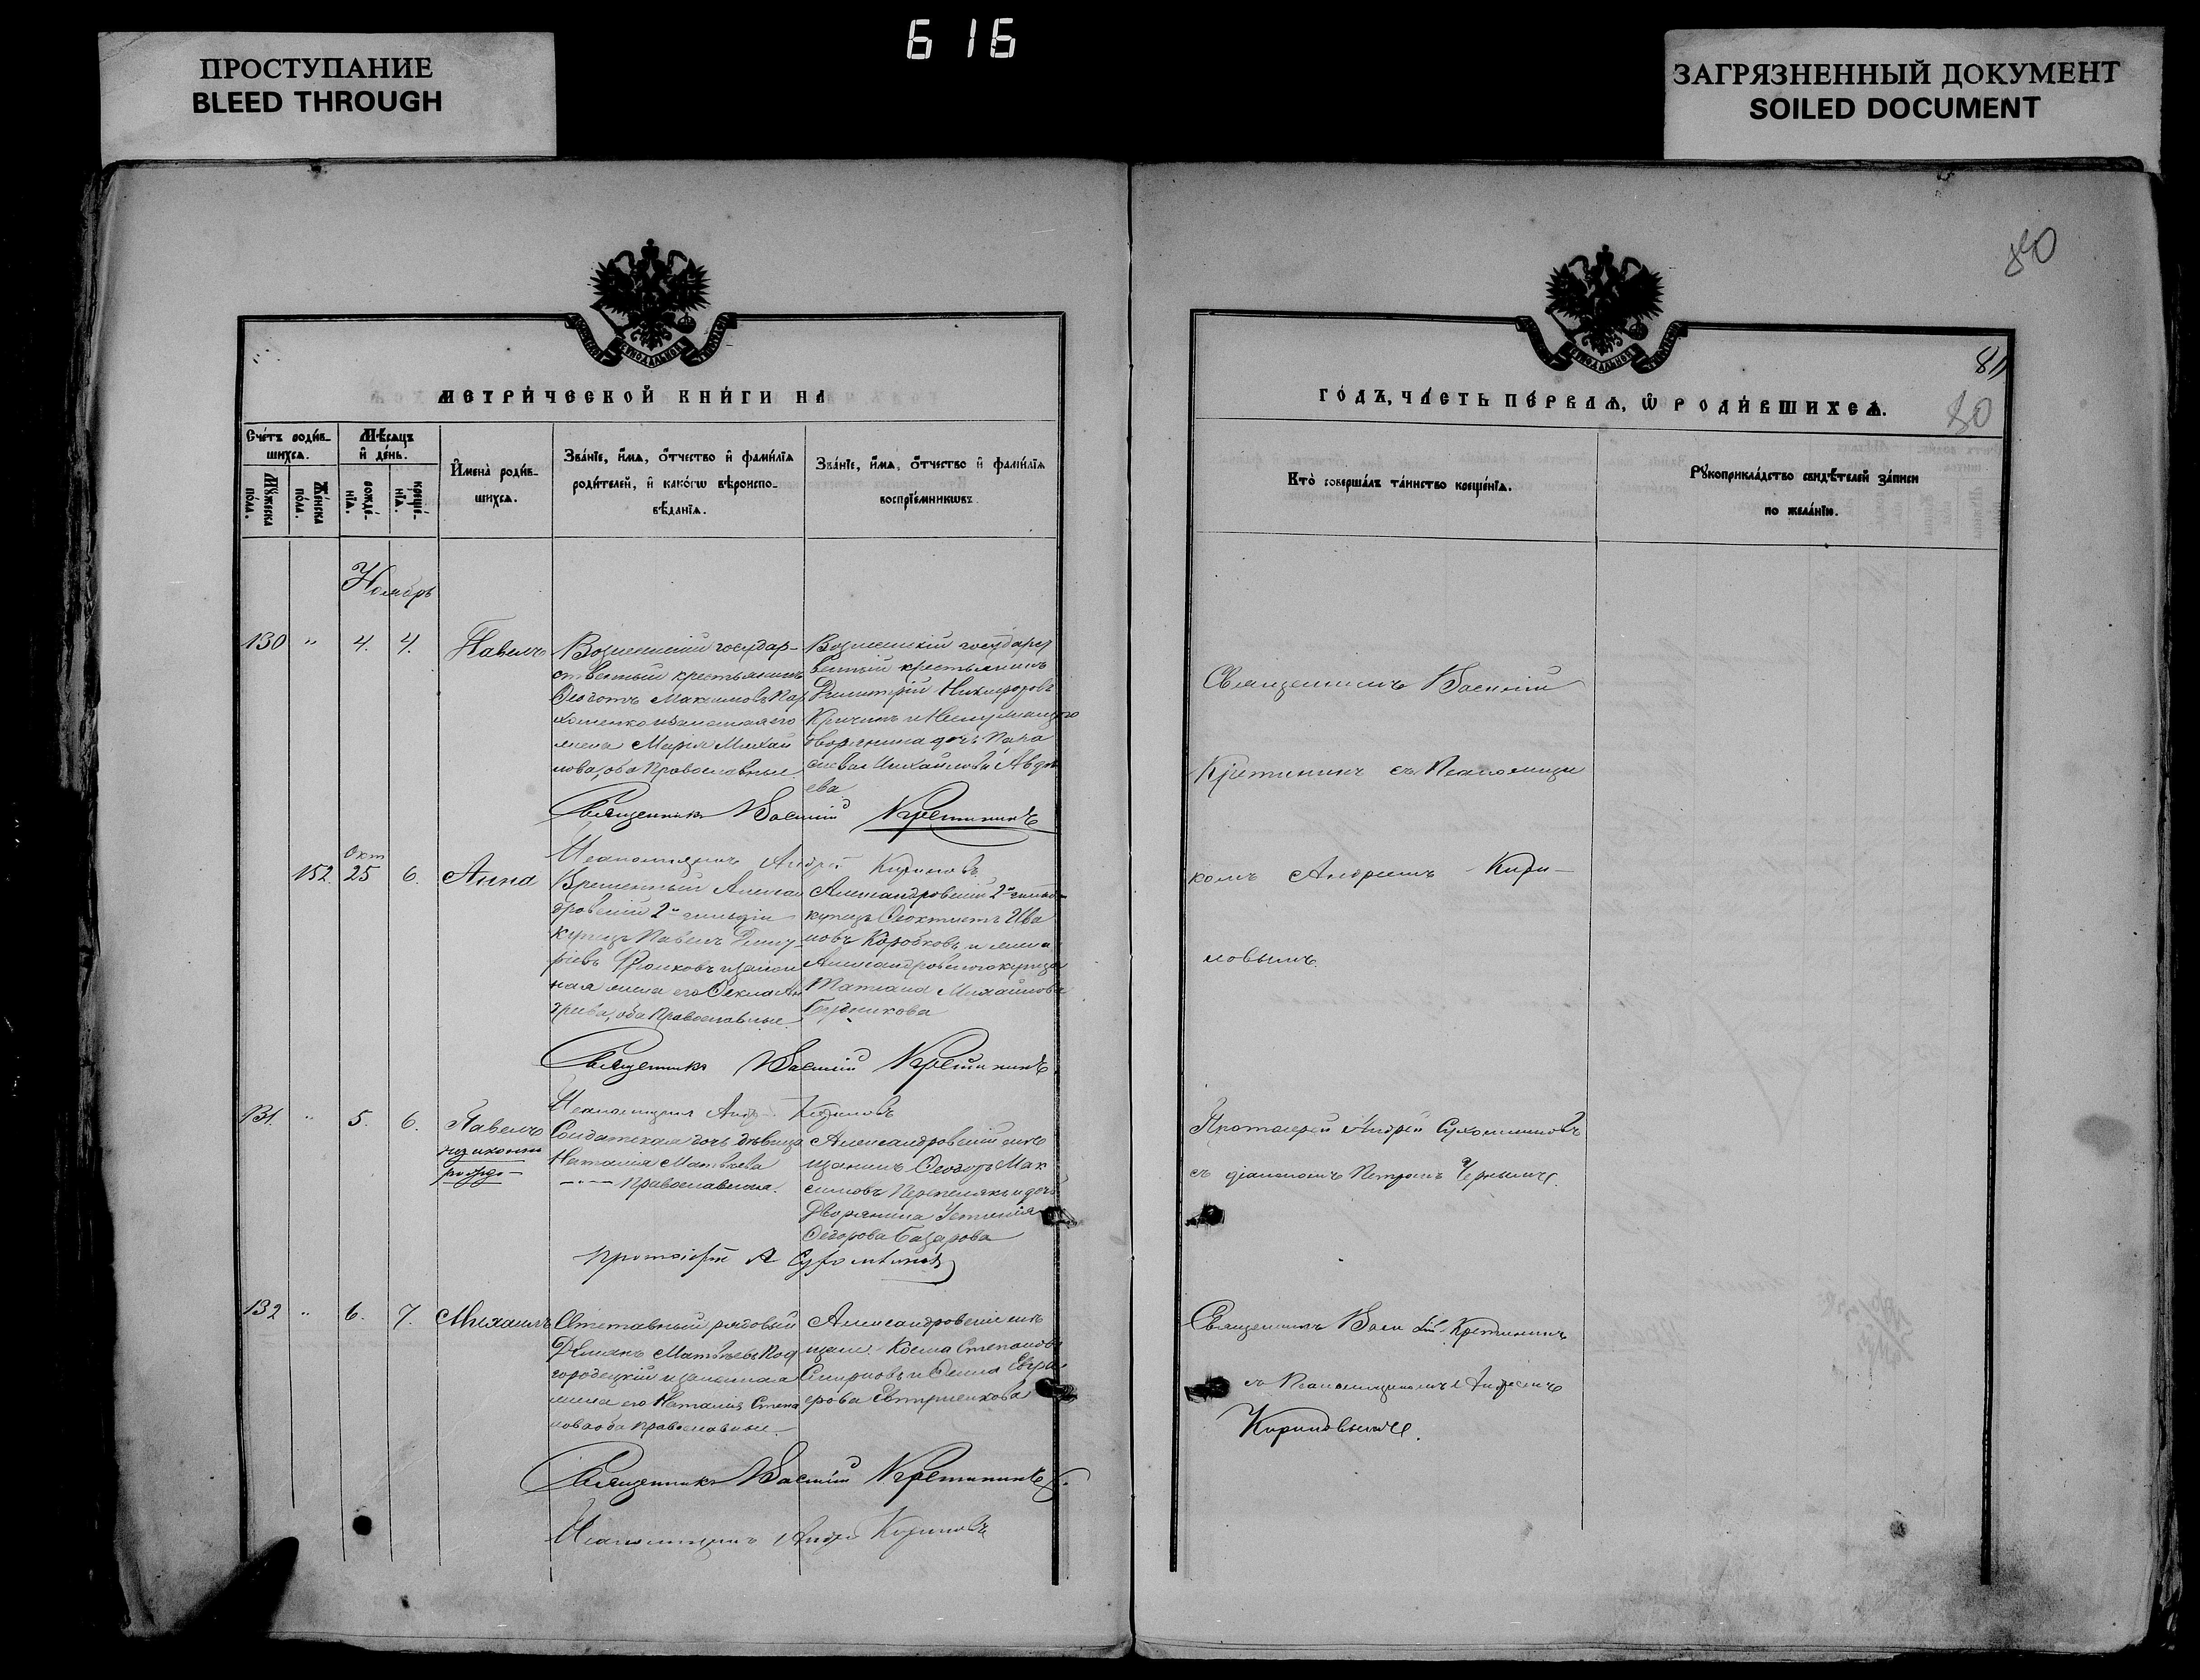 616
ПРОСТУПАНИЕ
BLEED THROUGH
ЗАГРЯЗНЕННЫЙ ДОКУМЕНТ
SOILED DOCUMENT
80
81
80
МЕТРИ́ЧЕСКОЙ КНИ́ГИ НА
Сче́тъ роди́в-
шихсѧ.
Мѣ́сѧцъ
и҆ де́нь.
Мꙋ́жеска по́ла.
Же́нска по́ла.
рожде́-
нїѧ.
креще́-
нїѧ.
И҆мена̀ роди́в-
шихсѧ.
Зва́нїе, и҆́мѧ, ѻ҆́тчество и҆ фами́лїѧ
роди́телей, и҆ како́гѡ вѣроиспо-
вѣ́данїѧ.
Зва́нїе, и҆́мѧ, ѻ҆́тчество и҆ фами́лїѧ
воспрїе́мникѡвъ.
Ноябрь
130 " 4. 4. Павелъ
Вознесенский государ-
ственный крестьянинъ
Ѳедотъ Максимовъ Пар
хоменко и законная его
жена Марія Михаи
лова, оба православные.
Вознесенскій государст
венный крестьянинъ
Димитрій Никифоровъ
дворянина дочь
Михайлова Авдѣ
ева
Священникъ Василій Кретининъ
Псаломщикъ Андрей Кириловъ
Окт
152. 25 6. Анна
Временный Алексан
дровскій 2й гильдіи
купецъ Павелъ Дмит
ріевъ и закон
ная жена его Ѳекла Ан
дреева, оба православные.
Александровскій 2й гильд
купецъ Ѳеоктистъ Ива
новъ Коробковъ и жена
Александровского купца
Татіана Михайлова
Будникова
Священникъ Василій Кретининъ
Псаломщикъ Андр. Кириловъ
131. " 5. 6. Павелъ
незаконно
рожд-
Солдатская дочь дѣвица
Наталія Матвѣева
православная.
Александровскій мѣ
щанинъ Ѳеодоръ Мак
симовъ Перепеляк и дочь
дворянина
Ѳедорова Базарова
Протоіерей А Сухомлиновъ
132 " 6. 7. Михаилъ
Отставный рядовый
Демьянъ Матвѣевъ Под
городецкій и законная
жена его Наталія Степа
нова оба православные.
Александровскіе мѣ
щане: Косма Степановъ
Смирновъ и
Священникъ Василій Кретининъ.
Псаломщикъ Андрей Кириловъ
ГО́ДЪ, ЧА́СТЬ ПЕ́РВАѦ, Ѡ҆ РОДИ́ВШИХСѦ.
Кто̀ соверша́лъ та́инство креще́нїѧ.
Рꙋкоприкла́дство свидѣ́телей за́писи
по жела́нїю.
Священникъ Василій
Кретининъ съ Псаломщи
комъ Андреемъ Кири-
ловымъ.
Протоіерей Андрей Сухомлиновъ
съ діакономъ Петромъ Чернымъ.
Священникъ Васи лій Кретининъ
съ Псаломщикомъ Андреемъ
Кириловымъ.